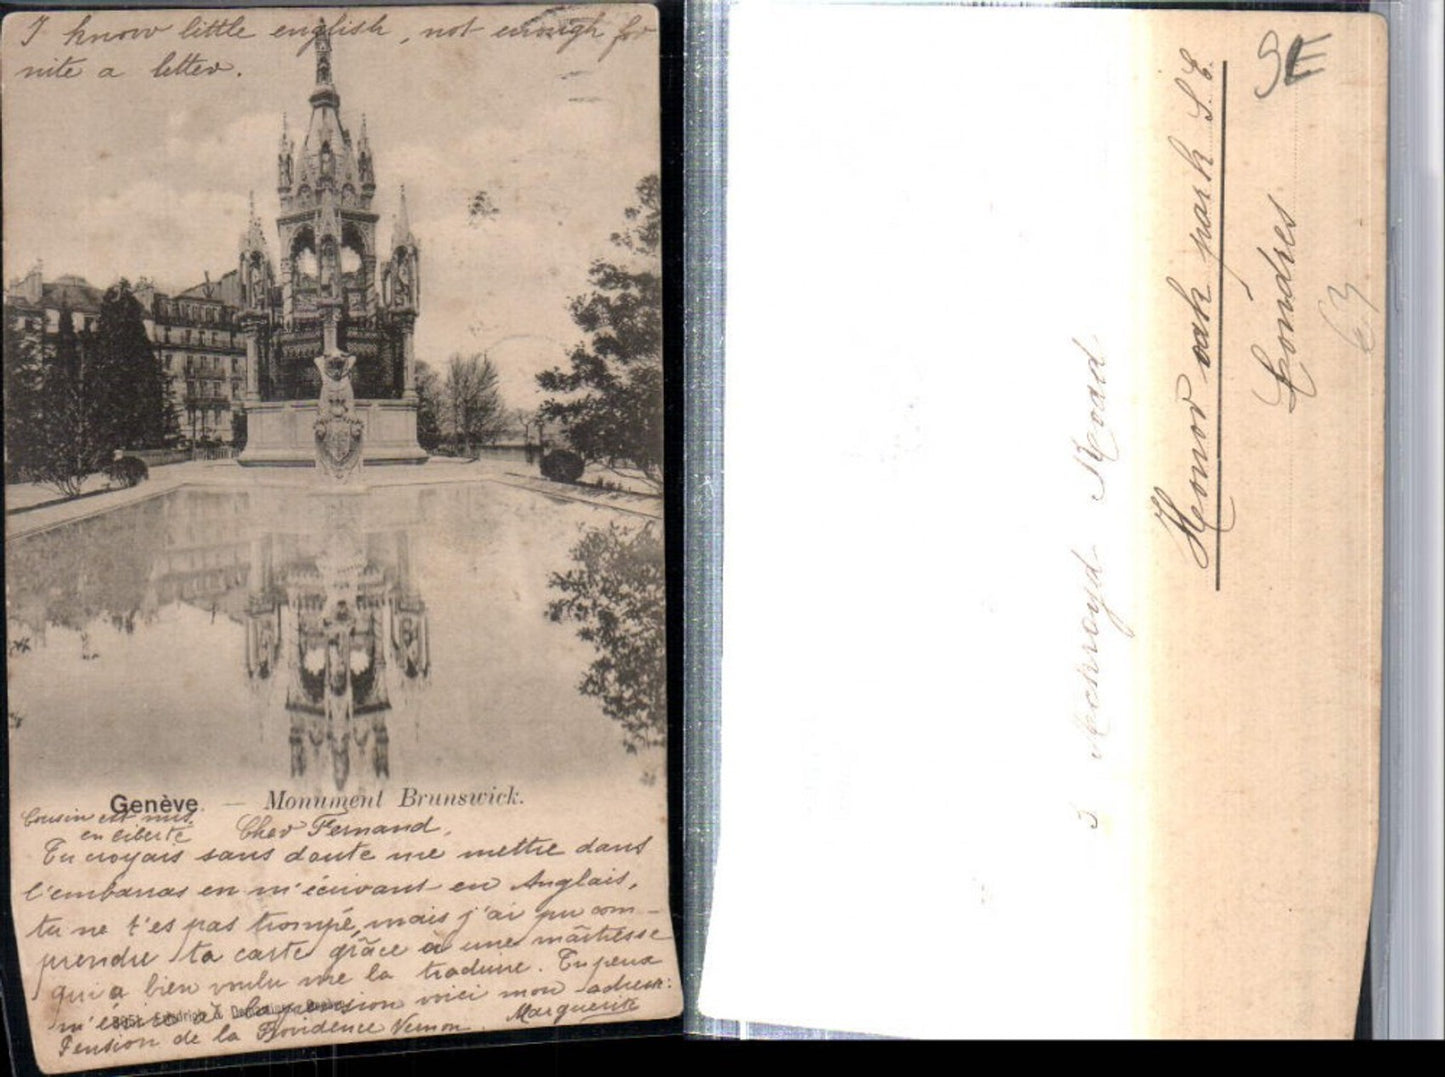 I know little english, not enough for
nite a letter.
Genève. — Monument Brunswick.
Cousin est mis
en liberté
Cher Fernand,
Tu croyais sans doute me mettre dans
l'embarras en m'écrivant en Anglais,
tu ne t'es pas trompé, mais j'ai pu com-
prendre ta carte grâce à une maîtresse
qui a bien voulu me la traduire. Tu peux
m'écrire à la pension voici mon adresse:
Pension de la Providence Vernon
Marguerite
3 Road
Honor oak park S.E.
Londres
SE